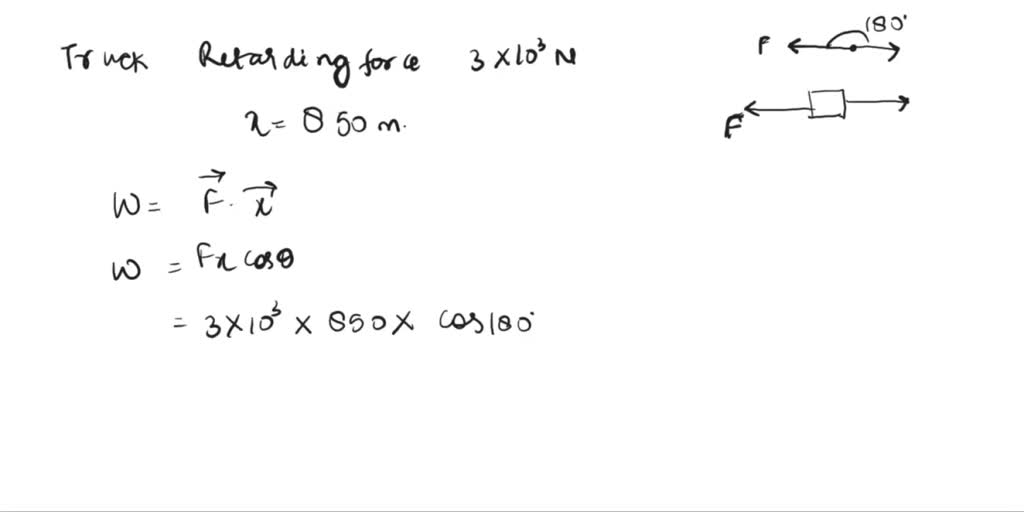 Truck Retarding force 3×10³ N
x = 850 m.
W = F⃗ . x⃗
W = Fx cosθ
= 3×10³ × 850 × cos180°
180°
F
F